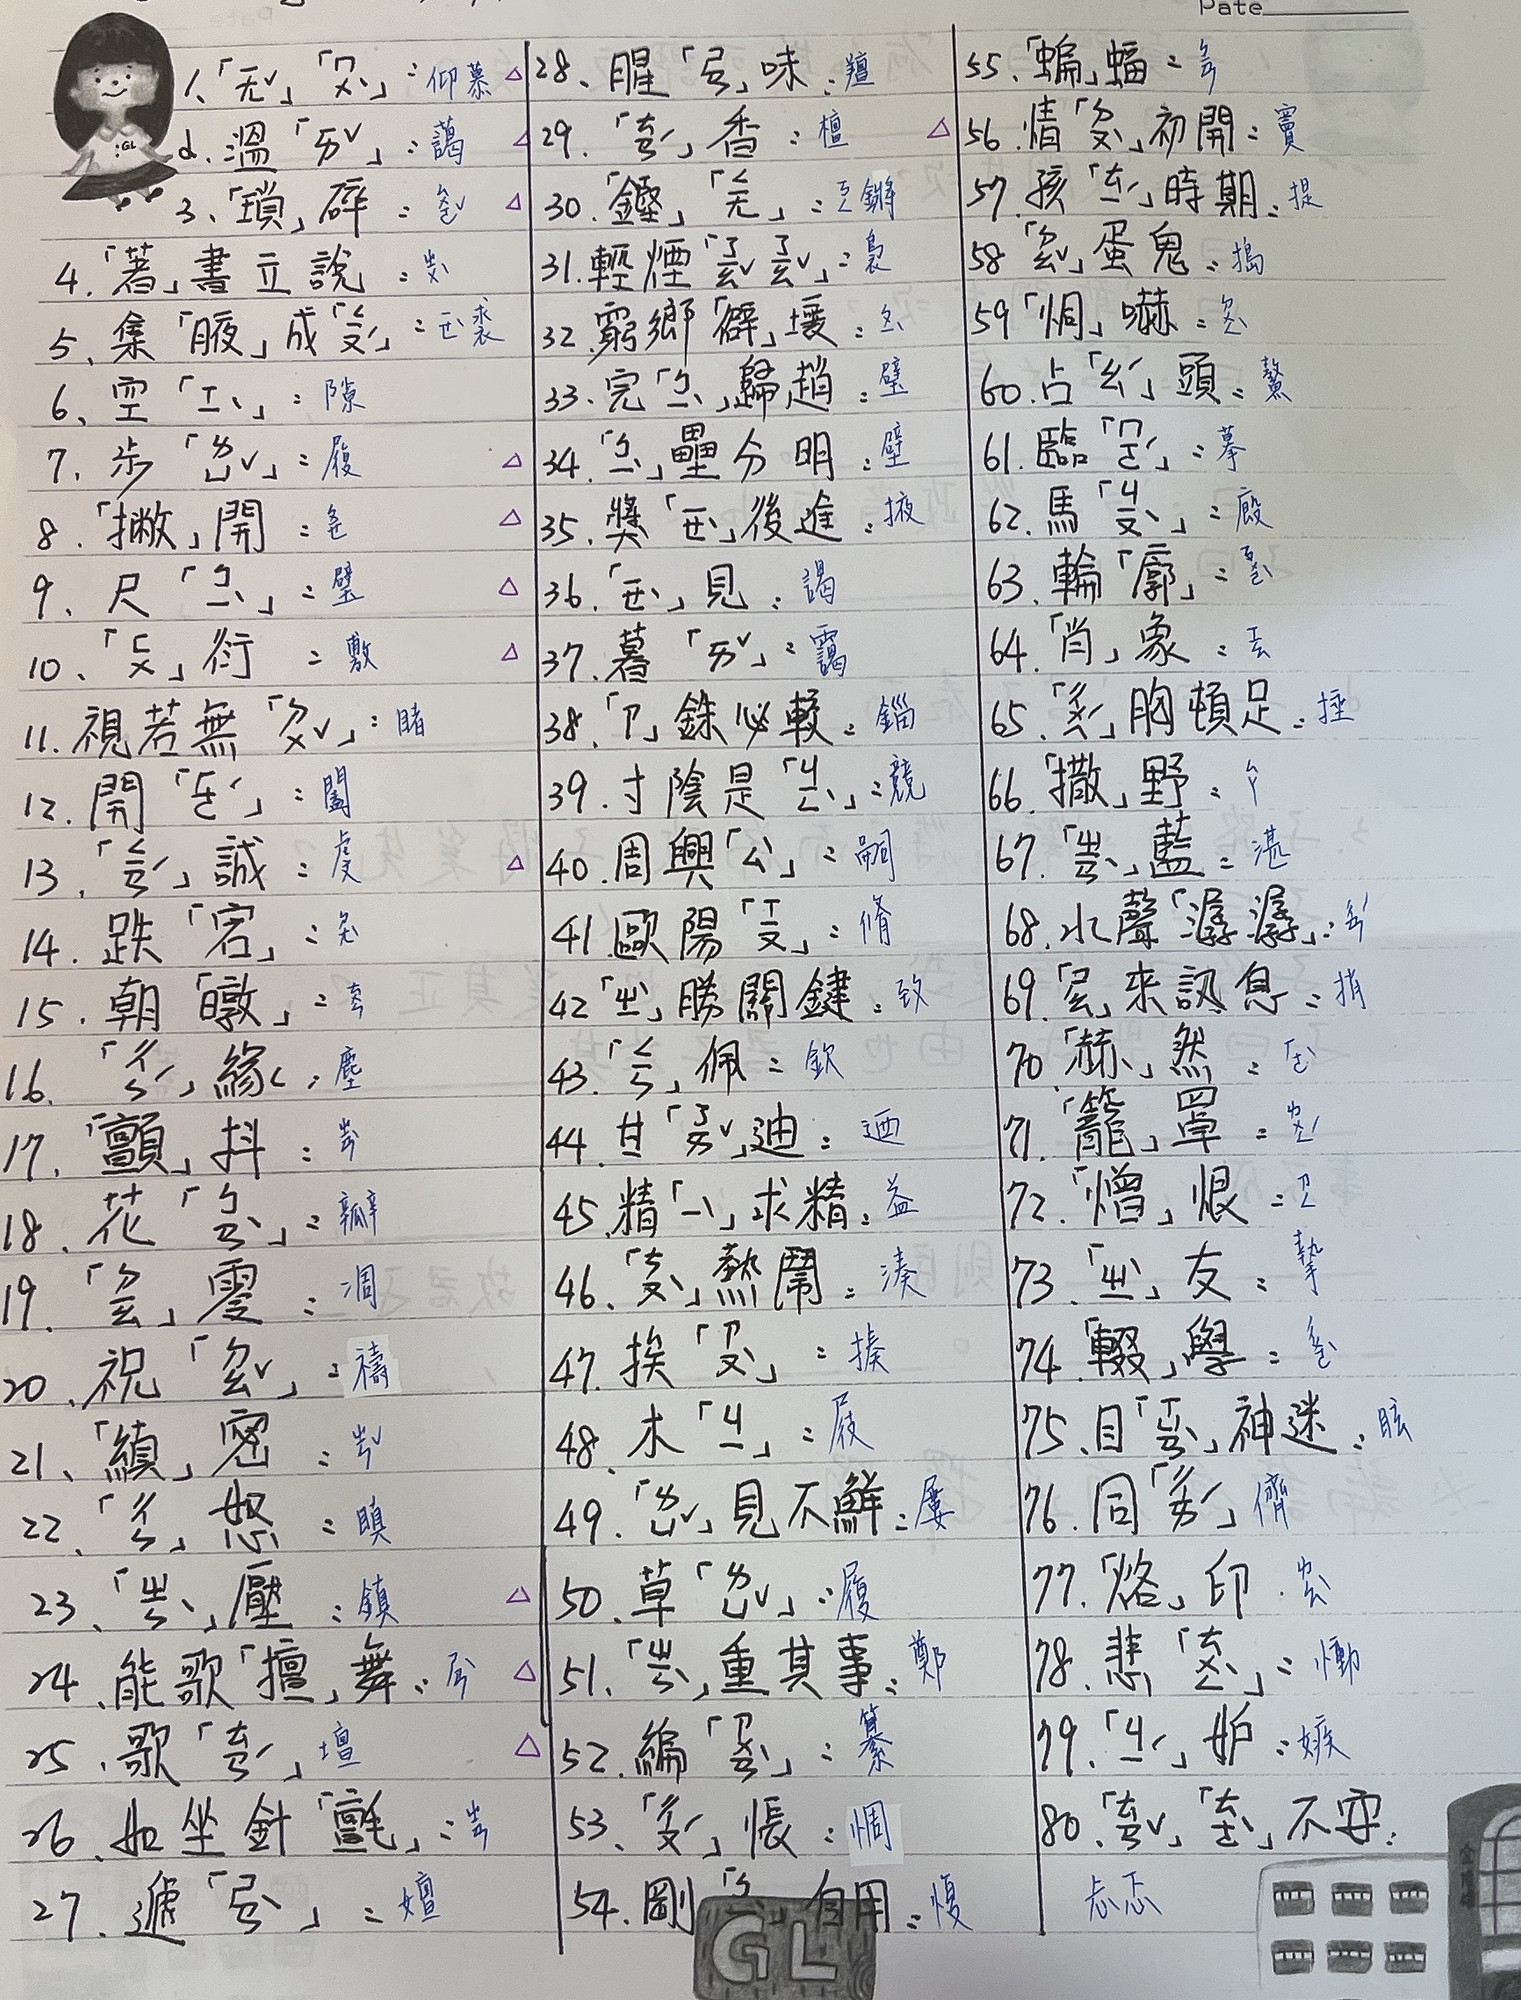 Date
1.「ㄧㄤˇ」「ㄇㄨˋ」:仰慕
2.溫「ㄞˇ」:藹
3.「瑣」碎:ㄙㄨㄛˇ
4.「著」書立說:ㄓㄨˋ
5.集「腋」成「ㄑㄧㄡˊ」:ㄧㄝˋ裘
6.空「ㄒㄧˋ」:隙
7.步「ㄌㄩˇ」:履
8.「撇」開:ㄆㄧㄝ
9.尺「ㄅㄧˋ」:璧
10.「ㄈㄨ」衍:敷
11.視若無「ㄉㄨˇ」:睹
12.開「ㄏㄜˊ」:闔
13.「ㄑㄧㄢˊ」誠:虔
14.跌「宕」:ㄉㄤˋ
15.朝「暾」:ㄊㄨㄣ
16.「ㄔㄣˊ」緣:塵
17.「顫」抖:ㄓㄢˋ
18.花「ㄅㄢˋ」:瓣
19.「ㄉㄧㄠ」零:凋
20.祝「ㄉㄠˇ」:禱
21.「縝」密:ㄓㄣˇ
22.「ㄔㄣ」怒:瞋
23.「ㄓㄣˋ」壓:鎮
24.能歌「擅」舞:ㄕㄢˋ
25.歌「ㄊㄢˊ」壇
26.如坐針「氈」:ㄓㄢ
27.遞「ㄕㄢˋ」:嬗
28.腥「ㄕㄢ」味:羶
29.「ㄊㄢˊ」香:檀
30.「鏗」「ㄑㄧㄤ」:ㄎㄥ鏘
31.輕煙「ㄋㄧㄠˇㄋㄧㄠˇ」:裊
32.窮鄉「僻」壤:ㄆㄧˋ
33.完「ㄅㄧˋ」歸趙:璧
34.「ㄅㄧˋ」壘分明:壁
35.獎「ㄧㄝˋ」後進:掖
36.「ㄧㄝˋ」見:謁
37.暮「ㄞˇ」:靄
38.「ㄗ」銖必較:錙
39.寸陰是「ㄐㄧㄥˋ」:競
40.周興「ㄙˋ」:嗣
41.歐陽「ㄒㄧㄡ」:脩
42.「ㄓˋ」勝關鍵:致
43.「ㄑㄧㄣ」佩:欽
44.甘「ㄋㄞˇ」迪:迺
45.精「ㄧˋ」求精:益
46.「ㄘㄡˋ」熱鬧:湊
47.挨「ㄗㄡˋ」:揍
48.木「ㄐㄧ」:屐
49.「ㄌㄩˇ」見不鮮:屢
50.草「ㄌㄩˇ」:履
51.「ㄓㄥˋ」重其事:鄭
52.編「ㄗㄨㄢˇ」:纂
53.「ㄔㄡˊ」悵:惆
54.剛「ㄅㄧˋ」自用:愎
GL
55.「蝙」蝠:ㄅㄧㄢ
56.情「ㄉㄡˋ」初開:竇
57.孩「ㄊㄧˊ」時期:提
58.「ㄉㄠˇ」蛋鬼:搗
59.「恫」嚇:ㄉㄨㄥˋ
60.占「ㄠˊ」頭:鰲
61.臨「ㄇㄛˊ」:摹
62.馬「ㄐㄧㄡˋ」:廄
63.輪「廓」:ㄎㄨㄛˋ
64.「肖」象:ㄒㄧㄠ
65.「ㄔㄨㄟˊ」胸頓足:捶
66.「撒」野:ㄙㄚ
67.「ㄓㄢˋ」藍:湛
68.水聲「潺潺」:ㄔㄢˊ
69.「ㄕㄠ」來訊息:捎
70.「赫」然:ㄏㄜˋ
71.「籠」罩:ㄌㄨㄥˊ
72.「憎」恨:ㄗㄥ
73.「ㄓˋ」友:摯
74.「輟」學:ㄔㄨㄛˋ
75.目「ㄒㄩㄢˋ」神迷:眩
76.同「ㄔㄞˊ」儕
77.「烙」印:ㄌㄨㄛˋ
78.悲「ㄊㄨㄥˋ」:慟
79.「ㄐㄧˊ」妒:嫉
80.「ㄊㄢˇ」「ㄊㄜˋ」不安:
忐忑